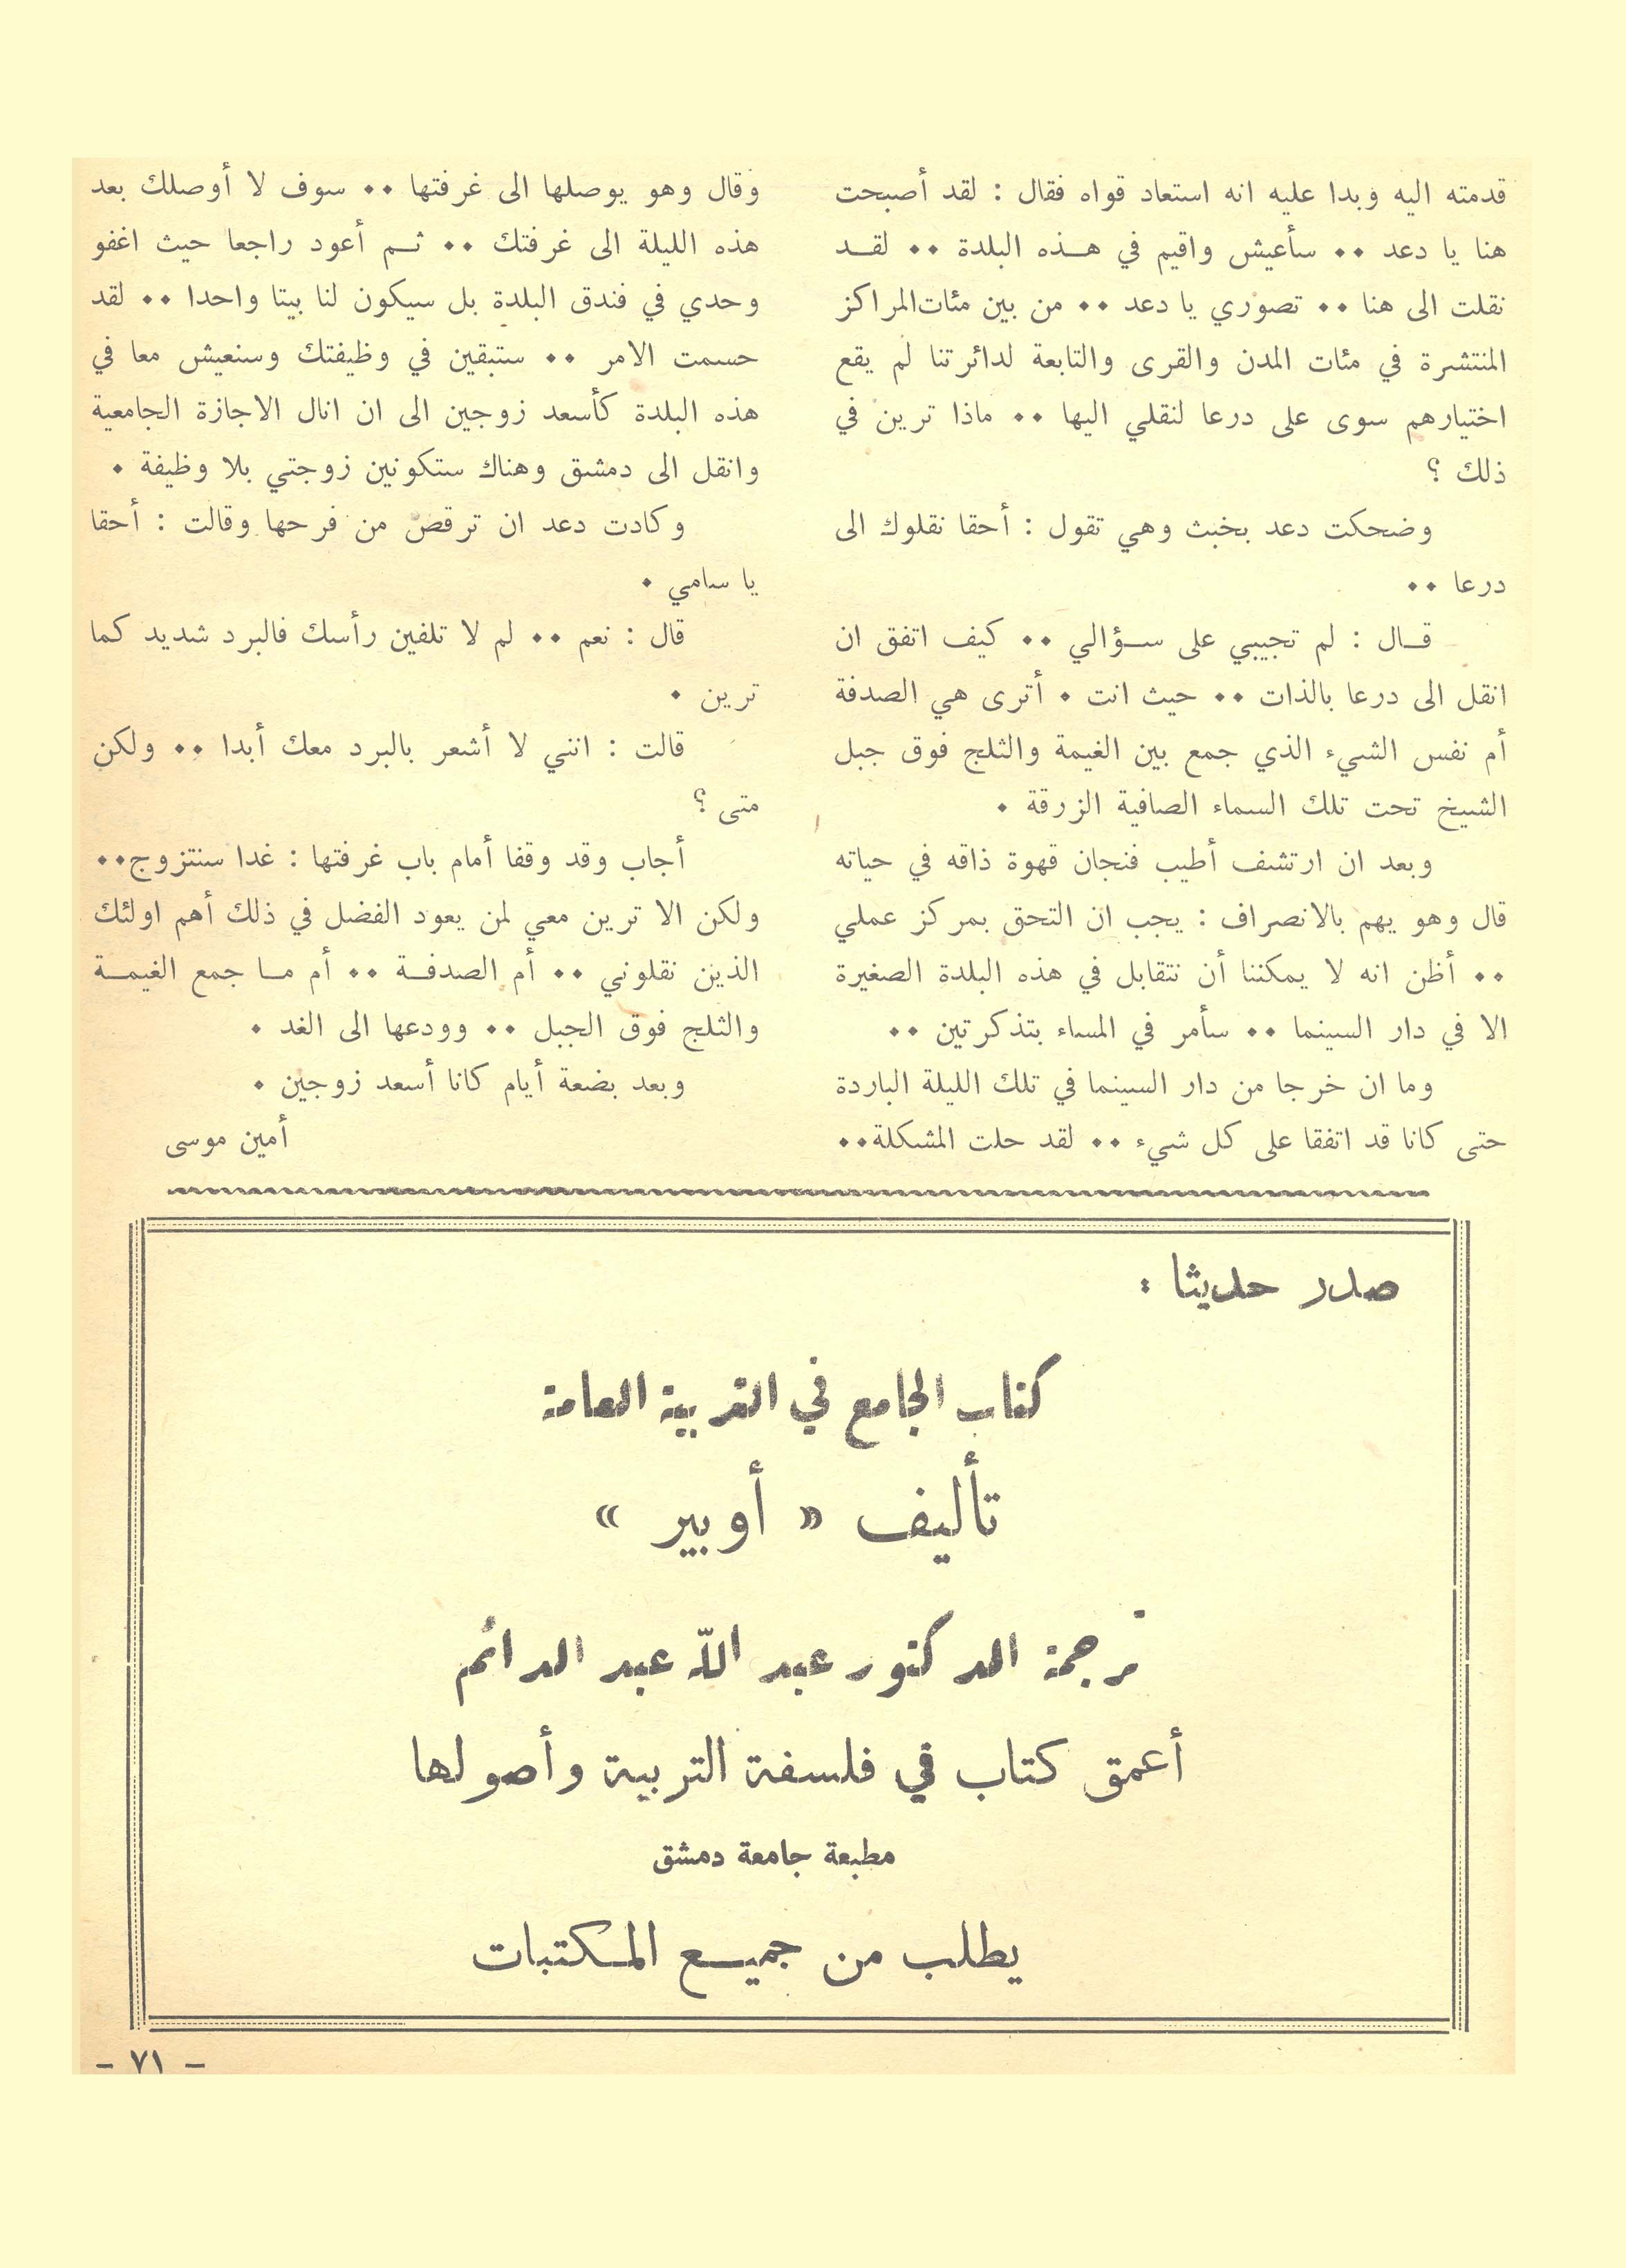 قدمته اليه وبدا عليه انه استعاد قواه فقال : لقد أصبحت
هنا يا دعد ٠٠ سأعيش واقيم في هـذه البلدة ٠٠ لقـد
نقلت الى هنا ٠٠ تصوري يا دعد ٠٠ من بين مئات المراكز
المنتشرة في مئات المدن والقرى والتابعة لدائرتنا لم يقع
اختيارهم سوى على درعا لنقلي اليها ٠٠ ماذا ترين في
ذلك ؟
وضحكت دعد بخبث وهي تقول : أحقا نقلوك الى
درعا ٠٠
قـال : لم تجيبي على سـؤالي ٠٠ كيف اتفق ان
انقل الى درعا بالذات ٠٠ حيث انت ٠ أترى هي الصدفة
أم نفس الشيء الذي جمع بين الغيمة والثلج فوق جبل
الشيخ تحت تلك السماء الصافية الزرقة ٠
وبعد ان ارتشف أطيب فنجان قهوة ذاقه في حياته
قال وهو يهم بالانصراف : يجب ان التحق بمركز عملي
٠٠ أظن انه لا يمكننا أن نتقابل في هذه البلدة الصغيرة
الا في دار السينما ٠٠ سأمر في المساء بتذكرتين ٠٠
وما ان خرجا من دار السينما في تلك الليلة الباردة
حتى كانا قد اتفقا على كل شيء ٠٠ لقد حلت المشكلة٠٠
وقال وهو يوصلها الى غرفتها ٠٠ سوف لا أوصلك بعد
هذه الليلة الى غرفتك ٠٠ ثـم أعود راجعا حيث اغفو
وحدي في فندق البلدة بل سيكون لنا بيتا واحدا ٠٠ لقد
حسمت الامر ٠٠ ستبقين في وظيفتك وسنعيش معا في
هذه البلدة كأسعد زوجين الى ان انال الاجازة الجامعية
وانقل الى دمشق وهناك ستكونين زوجتي بلا وظيفة ٠
وكادت دعد ان ترقص من فرحها وقالت : أحقا
يا سامي ٠
قال : نعم ٠٠ لم لا تلفين رأسك فالبرد شديد كما
ترين ٠
قالت : انني لا أشعر بالبرد معك أبدا ٠٠ ولكن
متى ؟
أجاب وقد وقفا أمام باب غرفتها : غدا سنتزوج٠٠
ولكن الا ترين معي لمن يعود الفضل في ذلك أهم اولئك
الذين نقلوني ٠٠ أم الصدفـة ٠٠ أم مـا جمع الغيمـة
والثلج فوق الجبل ٠٠ وودعها الى الغد ٠
وبعد بضعة أيام كانا أسعد زوجين ٠
أمين موسى
صدر حديثا :
كتاب الجامع في التربية العامة
تأليف « أوبير »
ترجمة الدكتور عبد الله عبد الدائم
أعمق كتاب في فلسفة التربية وأصولها
مطبعة جامعة دمشق
يطلب من جميـع المكتبات
– ٧١ –